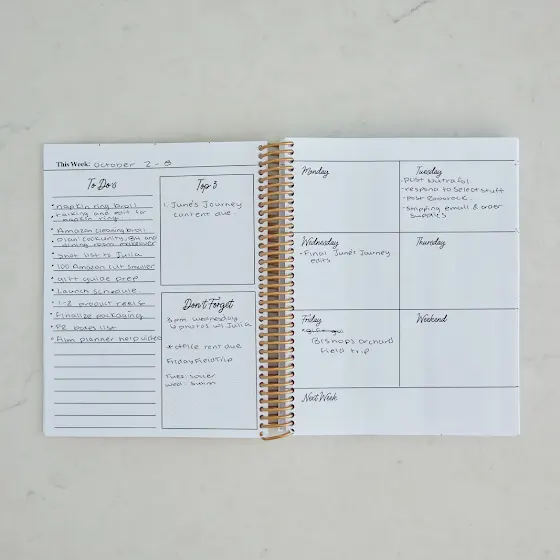 This Week: October 2 - 8
To Do's
• napkin ring broll
• talking and edit for
napkin ring
• Amazon cleaning broll
• plan community, BH and
dining room makeover
• shot list to Julia
• 100 Amazon cult smaller
• gift guide prep
• Launch schedule
• 1-2 product reels
• finalize packaging
• PR boxes list
• Film planner help video
Top 3
1. June's Journey
content due
Don't Forget
3pm wednesday
photos w/ Julia
* office rent due
Friday Field Trip
Tues: soccer
wed: swim
Monday
Tuesday
- post nutrafol
- respond to select stuff
- post
- shipping email & order
supplies
Wednesday
- Final June's Journey
edits
Thursday
Friday
Bishops orchard
field trip
Weekend
Next Week